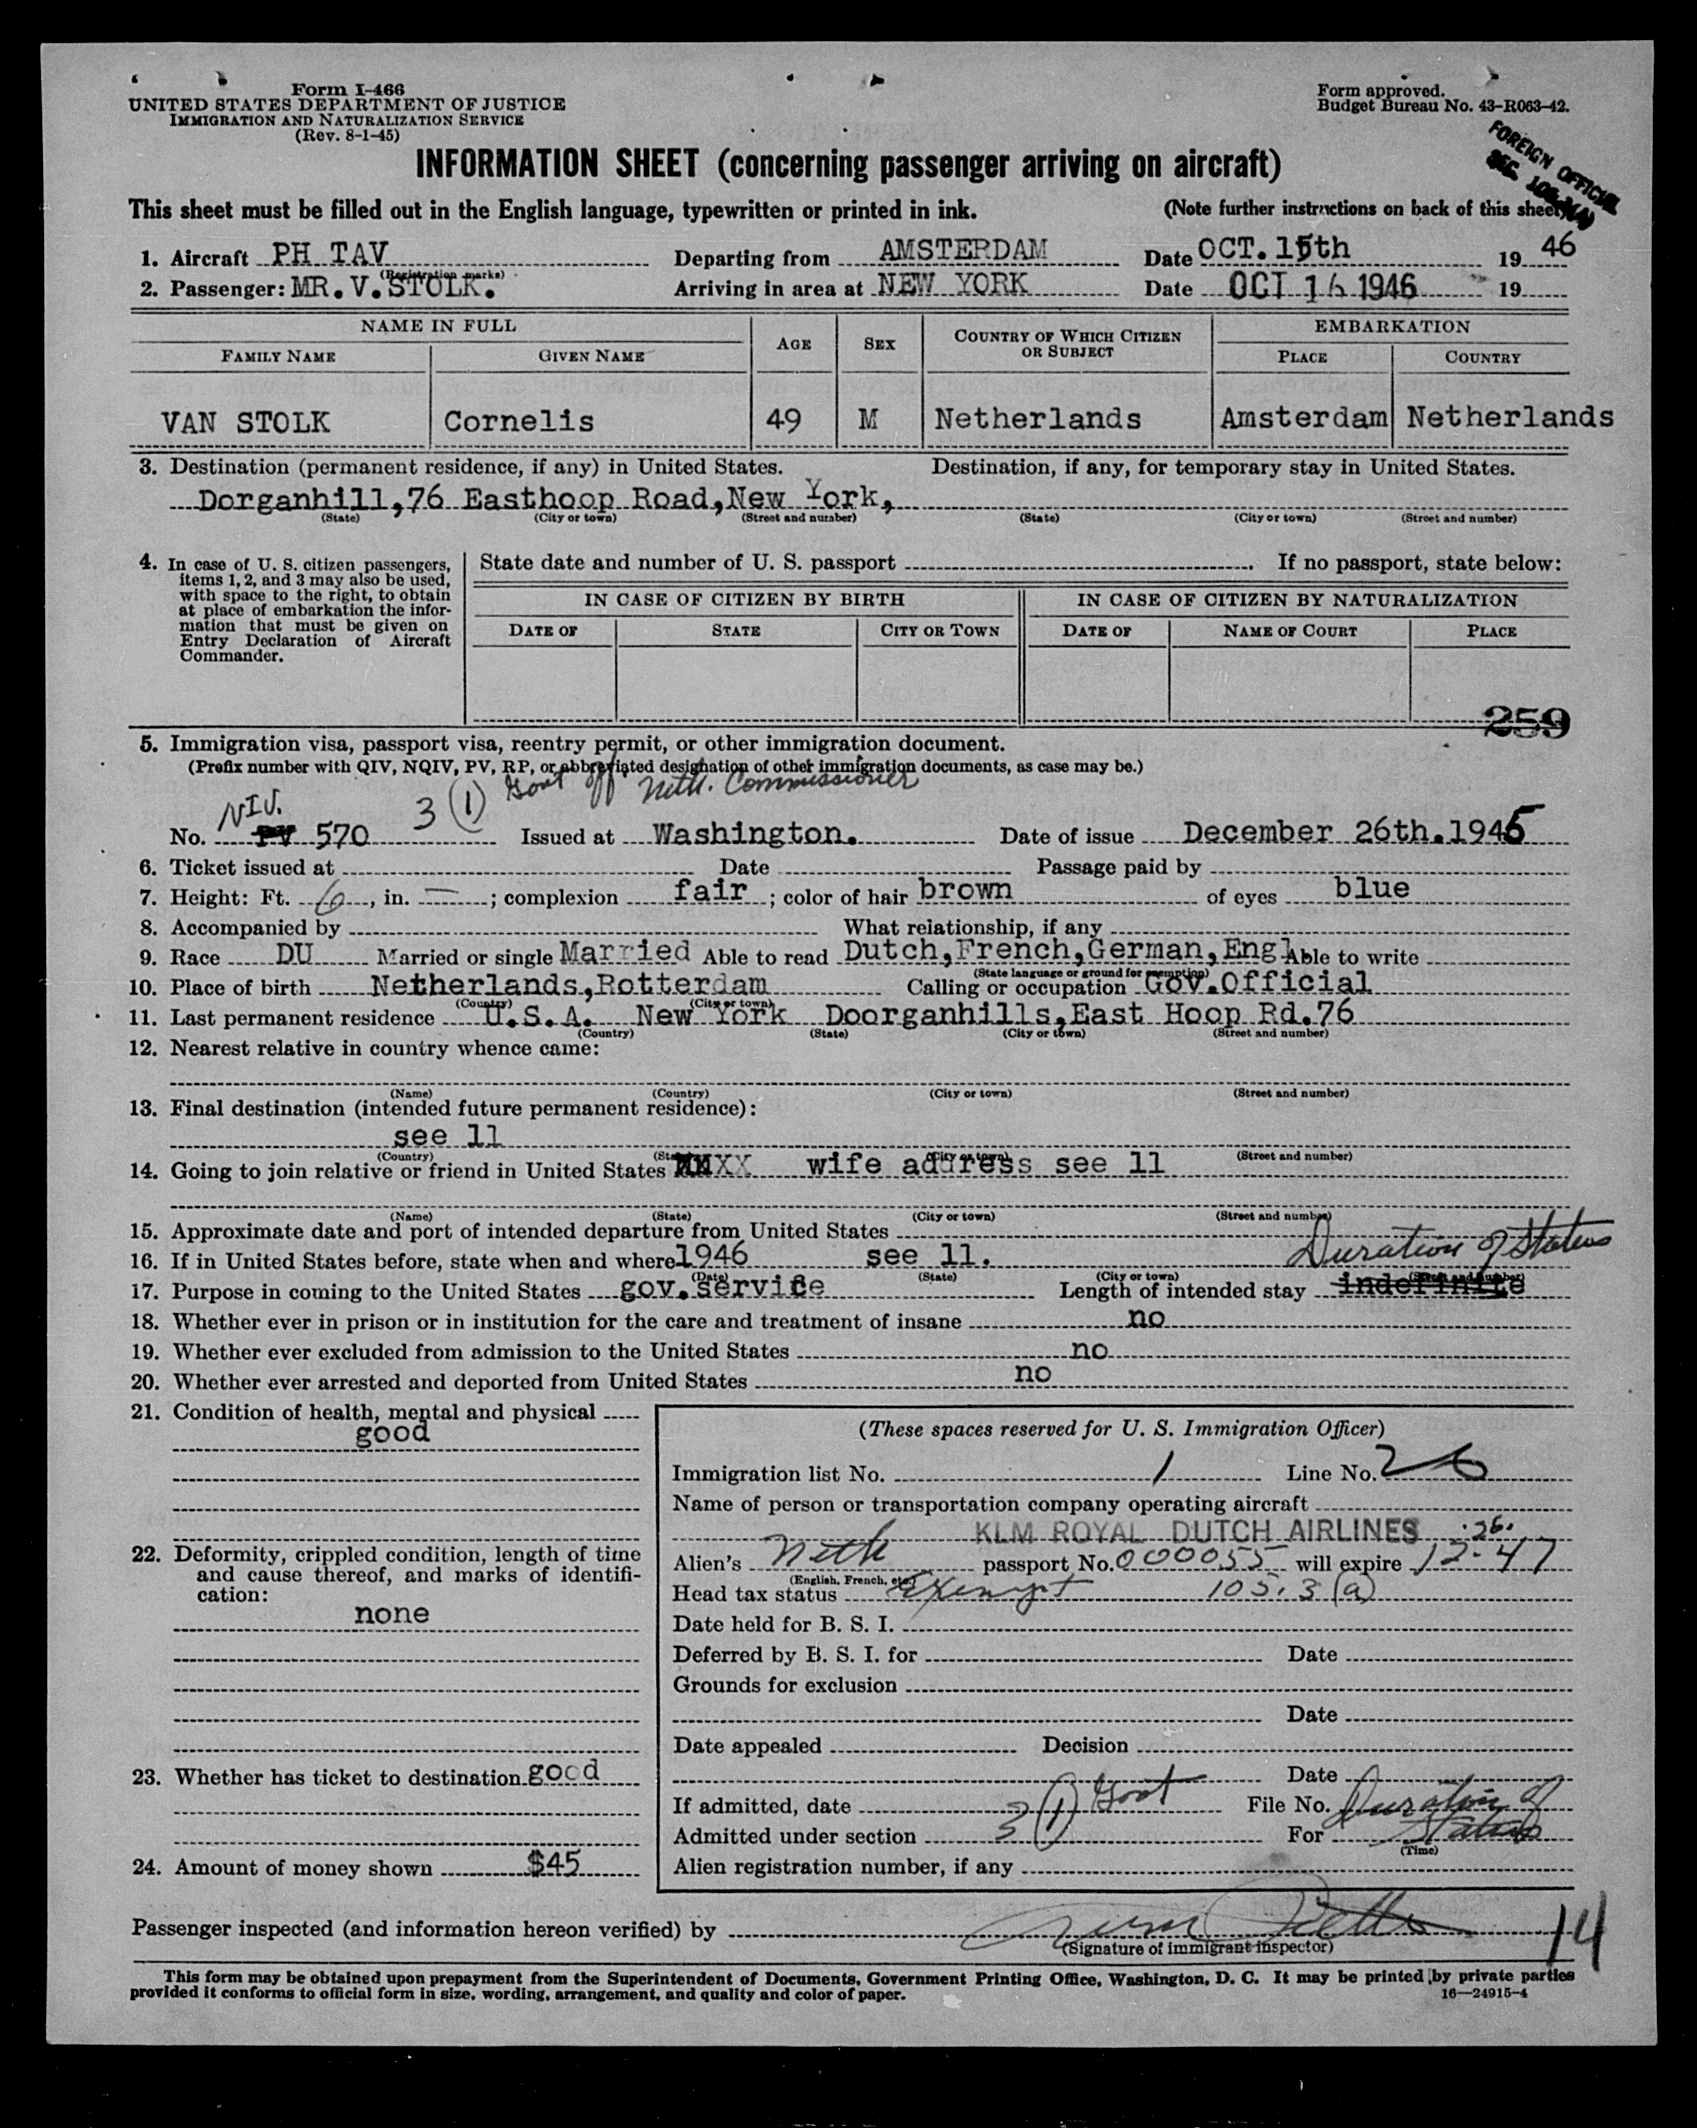 Form I-466
UNITED STATES DEPARTMENT OF JUSTICE
IMMIGRATION AND NATURALIZATION SERVICE
(Rev. 8-1-45)
Form approved.
Budget Bureau No. 43-R063-42.
FOREIGN OFFICIAL
INFORMATION SHEET (concerning passenger arriving on aircraft)
This sheet must be filled out in the English language, typewritten or printed in ink. (Note further instructions on back of this sheet)
1. Aircraft PH TAV Departing from AMSTERDAM Date OCT. 15th 19 46
(Registration marks)
2. Passenger: MR. V. STOLK. Arriving in area at NEW YORK Date OCT 16 1946 19
NAME IN FULL AGE SEX COUNTRY OF WHICH CITIZEN OR SUBJECT EMBARKATION
FAMILY NAME GIVEN NAME PLACE COUNTRY
VAN STOLK Cornelis 49 M Netherlands Amsterdam Netherlands
3. Destination (permanent residence, if any) in United States. Destination, if any, for temporary stay in United States.
Dorganhill, 76 Easthoop Road, New York,
(State) (City or town) (Street and number) (State) (City or town) (Street and number)
4. In case of U. S. citizen passengers, items 1, 2, and 3 may also be used, with space to the right, to obtain at place of embarkation the information that must be given on Entry Declaration of Aircraft Commander.
State date and number of U. S. passport . If no passport, state below:
IN CASE OF CITIZEN BY BIRTH IN CASE OF CITIZEN BY NATURALIZATION
DATE OF STATE CITY OR TOWN DATE OF NAME OF COURT PLACE
259
5. Immigration visa, passport visa, reentry permit, or other immigration document.
(Prefix number with QIV, NQIV, PV, RP, or abbreviated designation of other immigration documents, as case may be.)
NIV. 3 (1) Govt off Neth. Commissioner
No. PV 570 Issued at Washington. Date of issue December 26th. 1945
6. Ticket issued at Date Passage paid by
7. Height: Ft. 6, in. — ; complexion fair ; color of hair brown of eyes blue
8. Accompanied by What relationship, if any
9. Race DU Married or single Married Able to read Dutch, French, German, Engl Able to write
(State language or ground for exemption)
10. Place of birth Netherlands, Rotterdam Calling or occupation Gov. Official
(Country) (City or town)
11. Last permanent residence U. S. A. New York Doorganhills, East Hoop Rd. 76
(Country) (State) (City or town) (Street and number)
12. Nearest relative in country whence came:
(Name) (Country) (City or town) (Street and number)
13. Final destination (intended future permanent residence):
see 11
(Country) (State) (City or town) (Street and number)
14. Going to join relative or friend in United States XX wife address see 11
(Name) (State) (City or town) (Street and number)
15. Approximate date and port of intended departure from United States
16. If in United States before, state when and where 1946 see 11. Duration of Status
(Date) (State) (City or town) (Street and number)
17. Purpose in coming to the United States gov. service Length of intended stay indefinite
18. Whether ever in prison or in institution for the care and treatment of insane no
19. Whether ever excluded from admission to the United States no
20. Whether ever arrested and deported from United States no
21. Condition of health, mental and physical
good
22. Deformity, crippled condition, length of time and cause thereof, and marks of identification:
none
23. Whether has ticket to destination good
24. Amount of money shown $45
(These spaces reserved for U. S. Immigration Officer)
Immigration list No. 1 Line No. 26
Name of person or transportation company operating aircraft
KLM ROYAL DUTCH AIRLINES
Alien's Neth passport No. 000055 will expire 12-26-47
(English, French, etc.)
Head tax status Exempt 105.3 (a)
Date held for B. S. I.
Deferred by B. S. I. for Date
Grounds for exclusion
Date
Date appealed Decision
Date
If admitted, date File No.
Admitted under section 3 (1) Govt For Duration of Status
(Time)
Alien registration number, if any
Passenger inspected (and information hereon verified) by
(Signature of immigrant inspector)
14
This form may be obtained upon prepayment from the Superintendent of Documents, Government Printing Office, Washington, D. C. It may be printed by private parties
provided it conforms to official form in size, wording, arrangement, and quality and color of paper.
16—24915-4